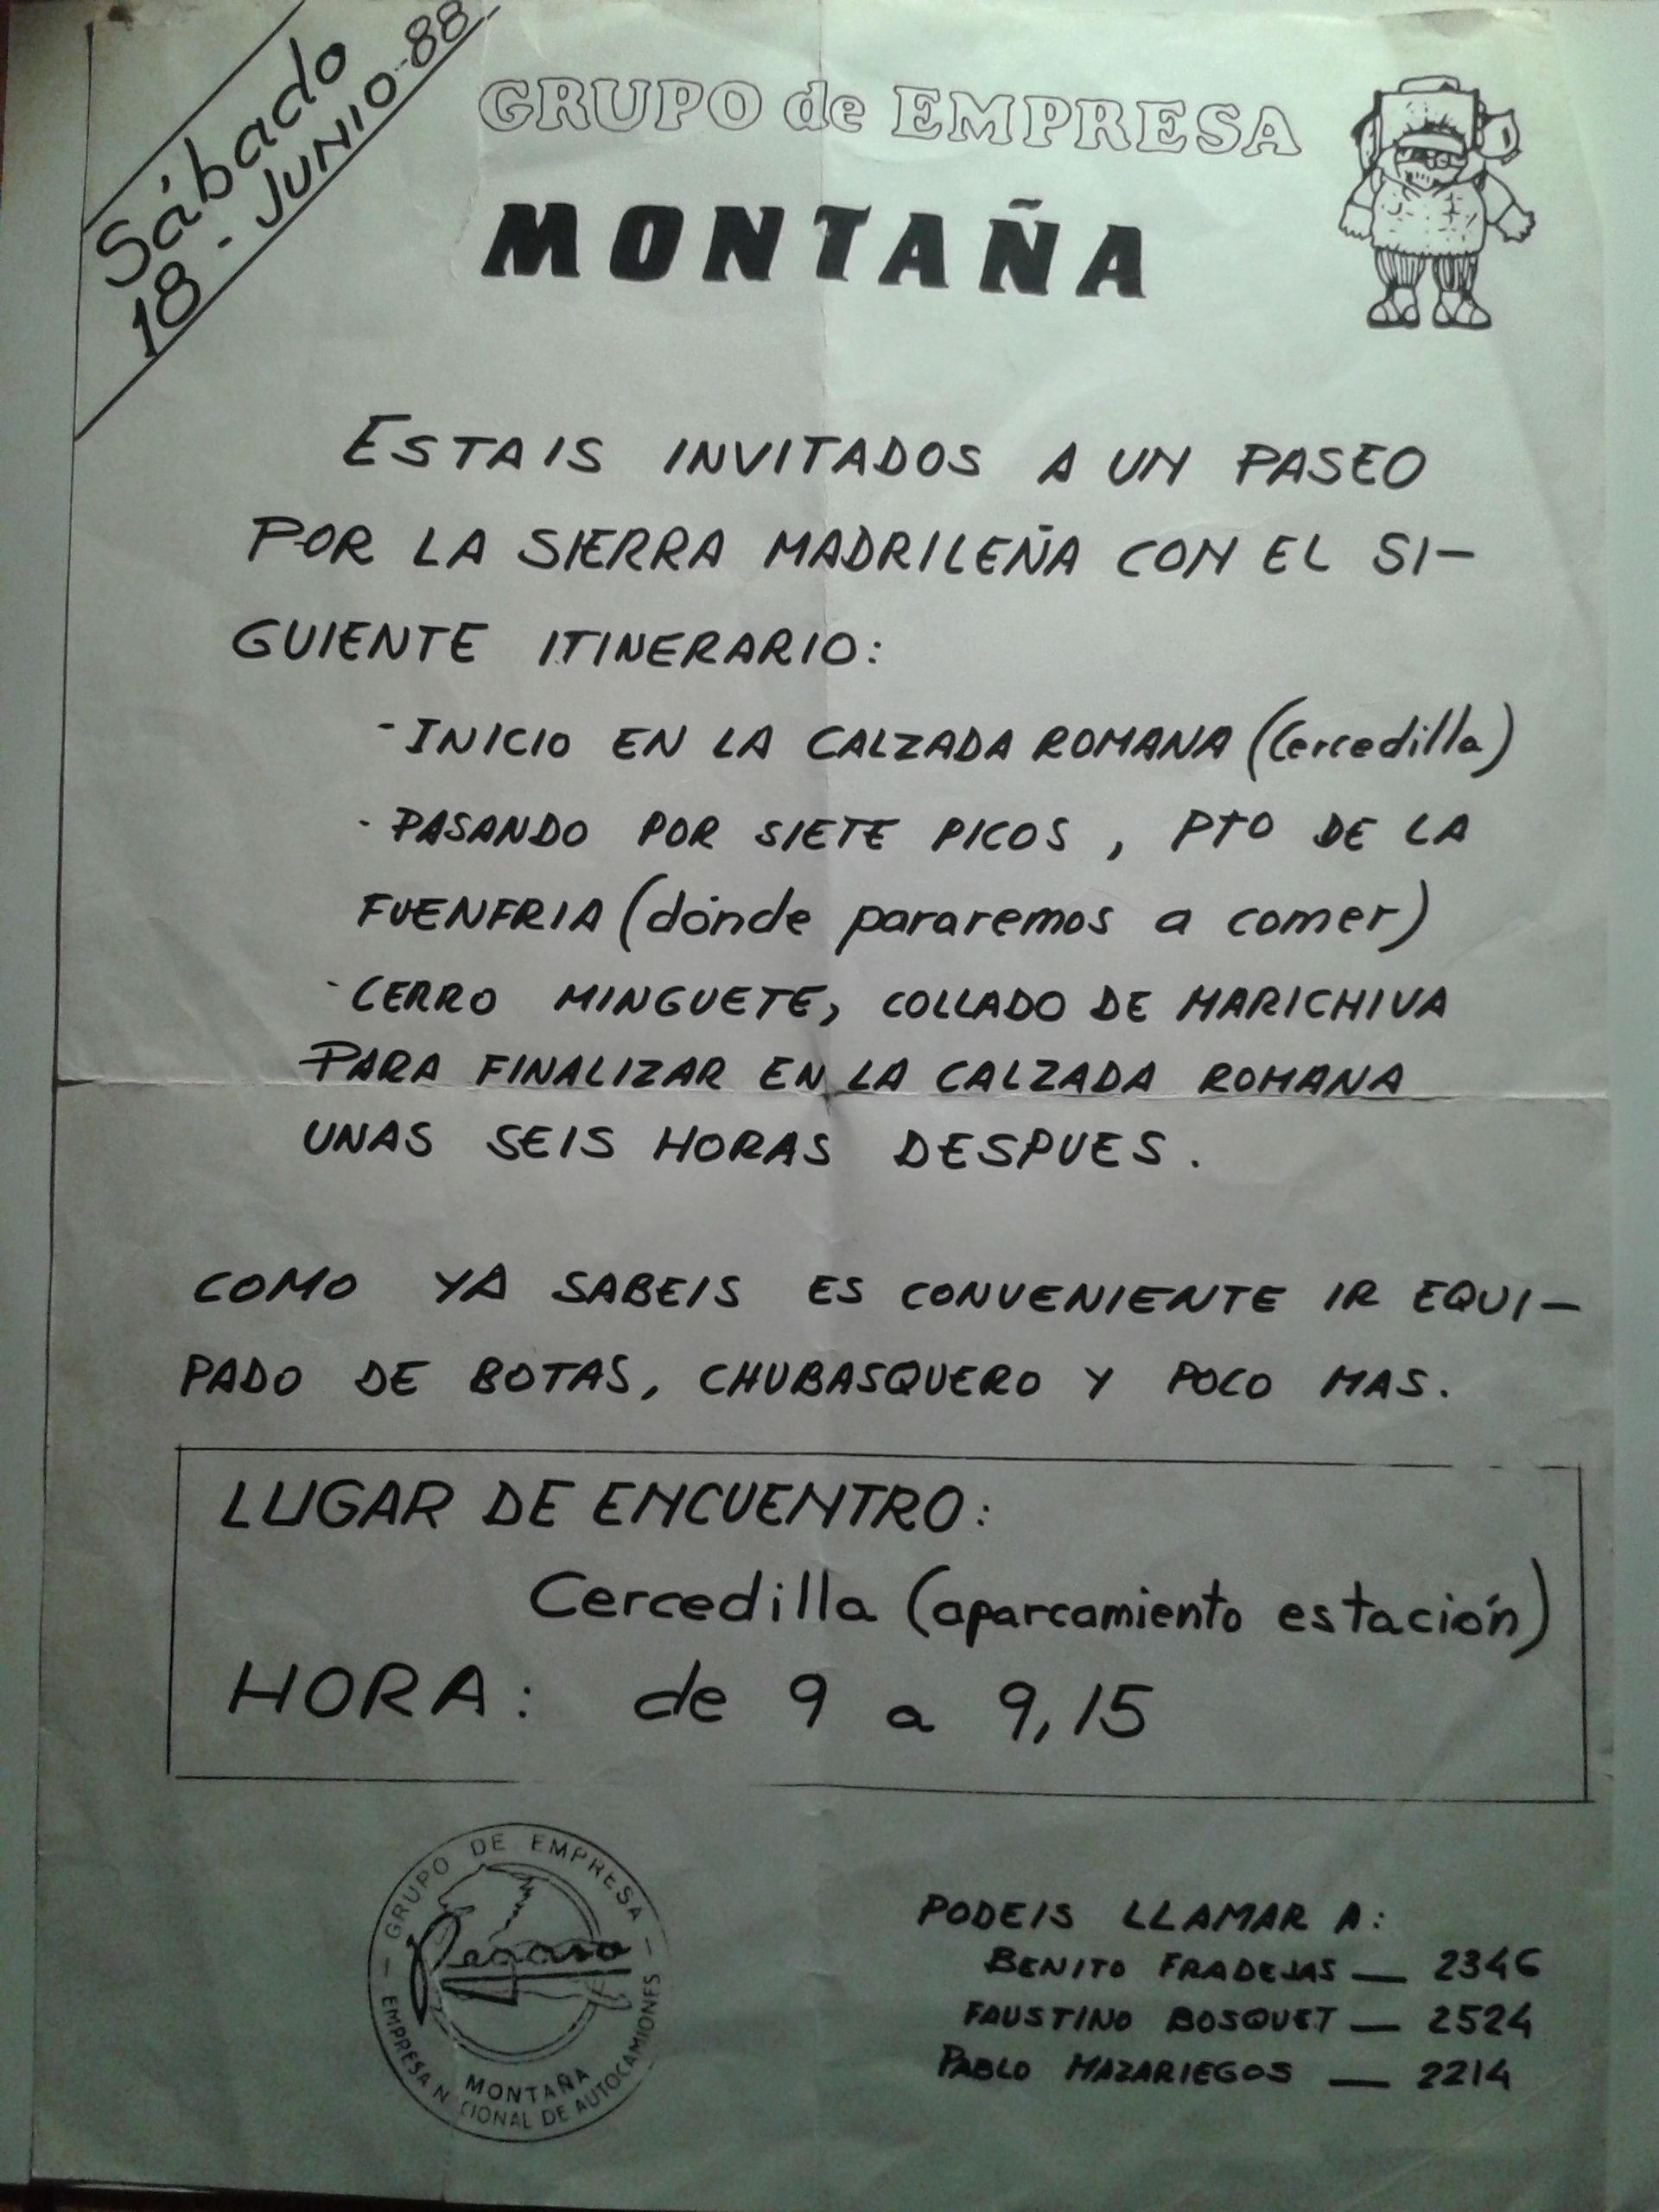 Sábado
18-JUNIO-88
GRUPO de EMPRESA
MONTAÑA
ESTAIS INVITADOS A UN PASEO
POR LA SIERRA MADRILEÑA CON EL SI-
GUIENTE ITINERARIO:
- INICIO EN LA CALZADA ROMANA (Cercedilla)
- PASANDO POR SIETE PICOS, PTO DE LA
FUENFRIA (dónde pararemos a comer)
- CERRO MINGUETE, COLLADO DE MARICHIVA
PARA FINALIZAR EN LA CALZADA ROMANA
UNAS SEIS HORAS DESPUES.
COMO YA SABEIS ES CONVENIENTE IR EQUI-
PADO DE BOTAS, CHUBASQUERO Y POCO MAS.
LUGAR DE ENCUENTRO:
Cercedilla (aparcamiento estación)
HORA: de 9 a 9,15
GRUPO DE EMPRESA
MONTAÑA
EMPRESA N CIONAL DE AUTOCAMIONES
PODEIS LLAMAR A:
BENITO FRADEJAS — 2346
FAUSTINO BOSQUET — 2524
PABLO MAZARIEGOS — 2214